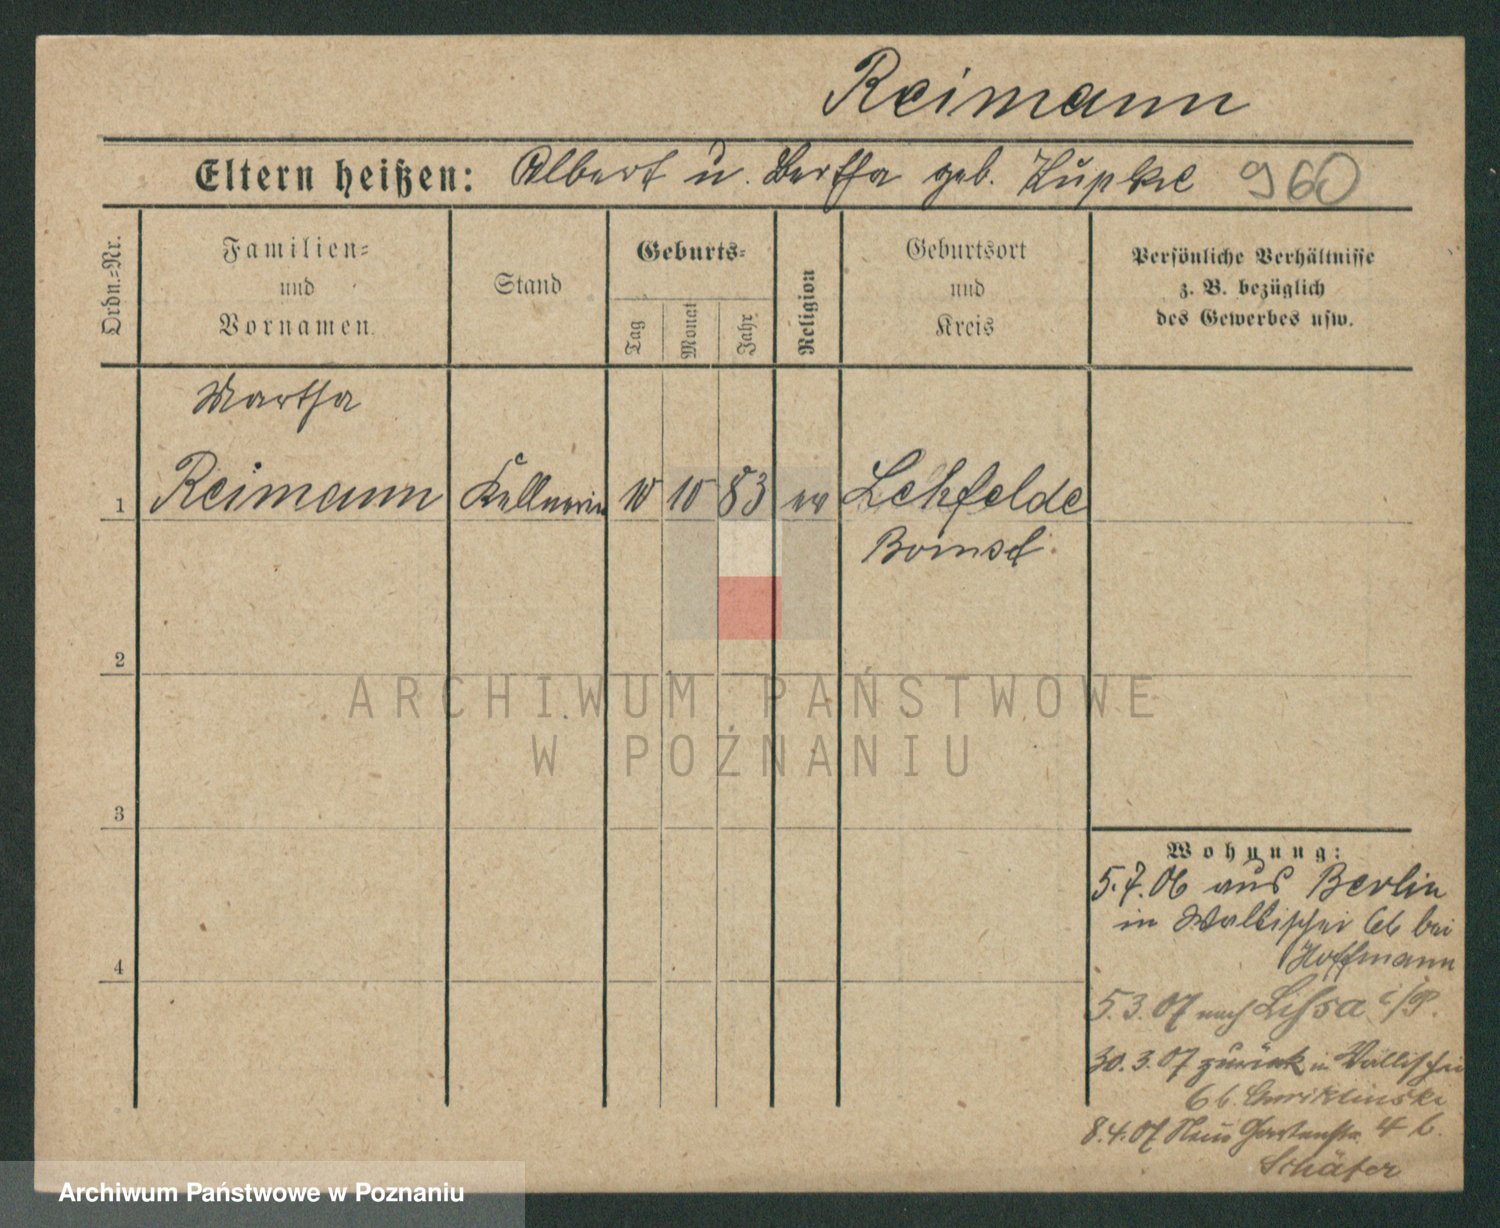 Reimann
Eltern heißen: Albert u. Bertha geb. Zupke 960
Ordn.=Nr.
Familien=
und
Vornamen
Stand
Geburts=
Tag
Monat
Jahr
Religion
Geburtsort
und
Kreis
Persönliche Verhältnisse
z. B. bezüglich
des Gewerbes usw.
Martha
1 Reimann Kellnerin 10 10 83 ev Lehfelde
Bomst.
2
3
4
ARCHIWUM PAŃSTWOWE
W POZNANIU
Wohnung:
5.7.06 aus Berlin
in Wallischei 6b bei
Hoffmann
5.3.07 nach Lissa i/P.
30.3.07 zurück in Wallischei
6b. Cwiklinski
8.4.07 Neue Gartenstr. 4 b.
Schäfer
Archiwum Państwowe w Poznaniu